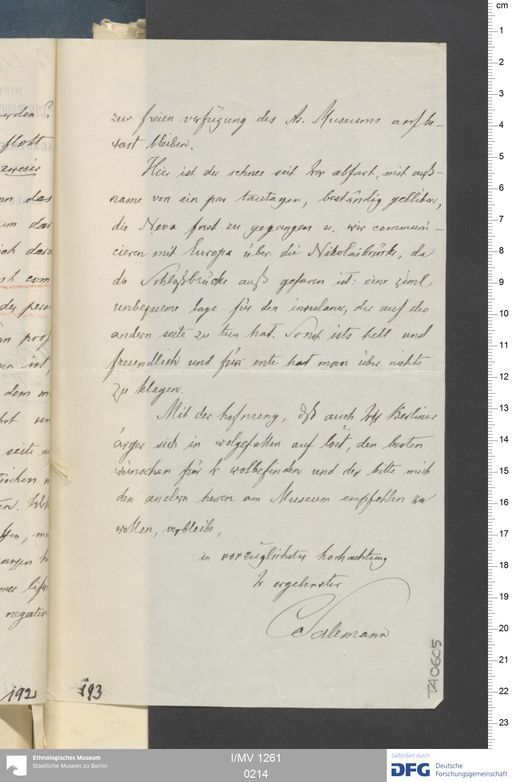 zur freien verfügung des As. Museums aufbe-
wart bleiben.
Hier ist der schnee seit Irer abfart, mit auß-
name von ein par tautagen, beständig gebliben,
die Neva fest zu gegangen u. wir communi-
cieren mit Europa über die Nikolaibrücke, da
die Schloßbrücke auß gefaren ist: eine ziml.
unbequeme lage für den insulaner, der auf der
andern seite zu tun hat. Sonst ists hell und
freundlich und für ernte hat man über nichts
zu klagen.
Mit der hofnung, dß auch Ir Berliner
ärger sich in wolgefallen auf löst, den besten
wünschen für Ir wolbefinden und der bitte mich
den andern herren am Museum empfehlen zu
wollen, verbleibe,
in vorzüglichster hochachtung
Ir ergebenster
C Salemann
192
193
TA0605
Ethnologisches Museum
Staatliche Museen zu Berlin
I/MV 1261
0214
Gefördert durch
DFG Deutsche
Forschungsgemeinschaft
cm
1
2
3
4
5
6
7
8
9
10
11
12
13
14
15
16
17
18
19
20
21
22
23